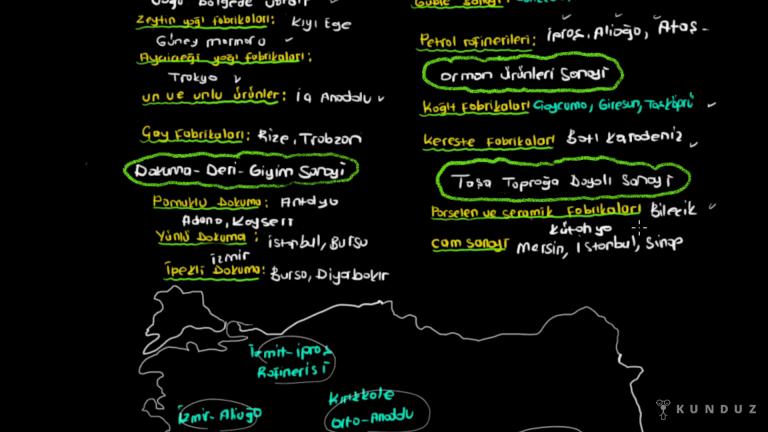 Zeytin yağı fabrikaları: Kıyı Ege
Güney marmara
Ayçiçeği yağı fabrikaları:
Trakya
un ve unlu ürünler: iç Anadolu
Çay Fabrikaları: Rize, Trabzon
Dokuma-Deri-Giyim Sanayi
Pamuklu Dokuma: Antalya
Adana, Kayseri
Yünlü Dokuma: istanbul, Bursa
izmir
İpekli Dokuma: Bursa, Diyarbakır
Petrol rafinerileri: ipraş, Aliağa, Ataş
orman Ürünleri Sanayi
Kağıt Fabrikaları Çaycuma, Giresun, Taşköprü
Kereste Fabrikaları Batı Karadeniz
Taşa Toprağa Dayalı Sanayi
Porselen ve seramik Fabrikaları Bilecik
Kütahya
cam sanayi Mersin, istanbul, Sinop
İzmit-ipraş
Rafinerisi
izmir-Aliağa
Kırıkkale
orta-Anadolu
KUNDUZ